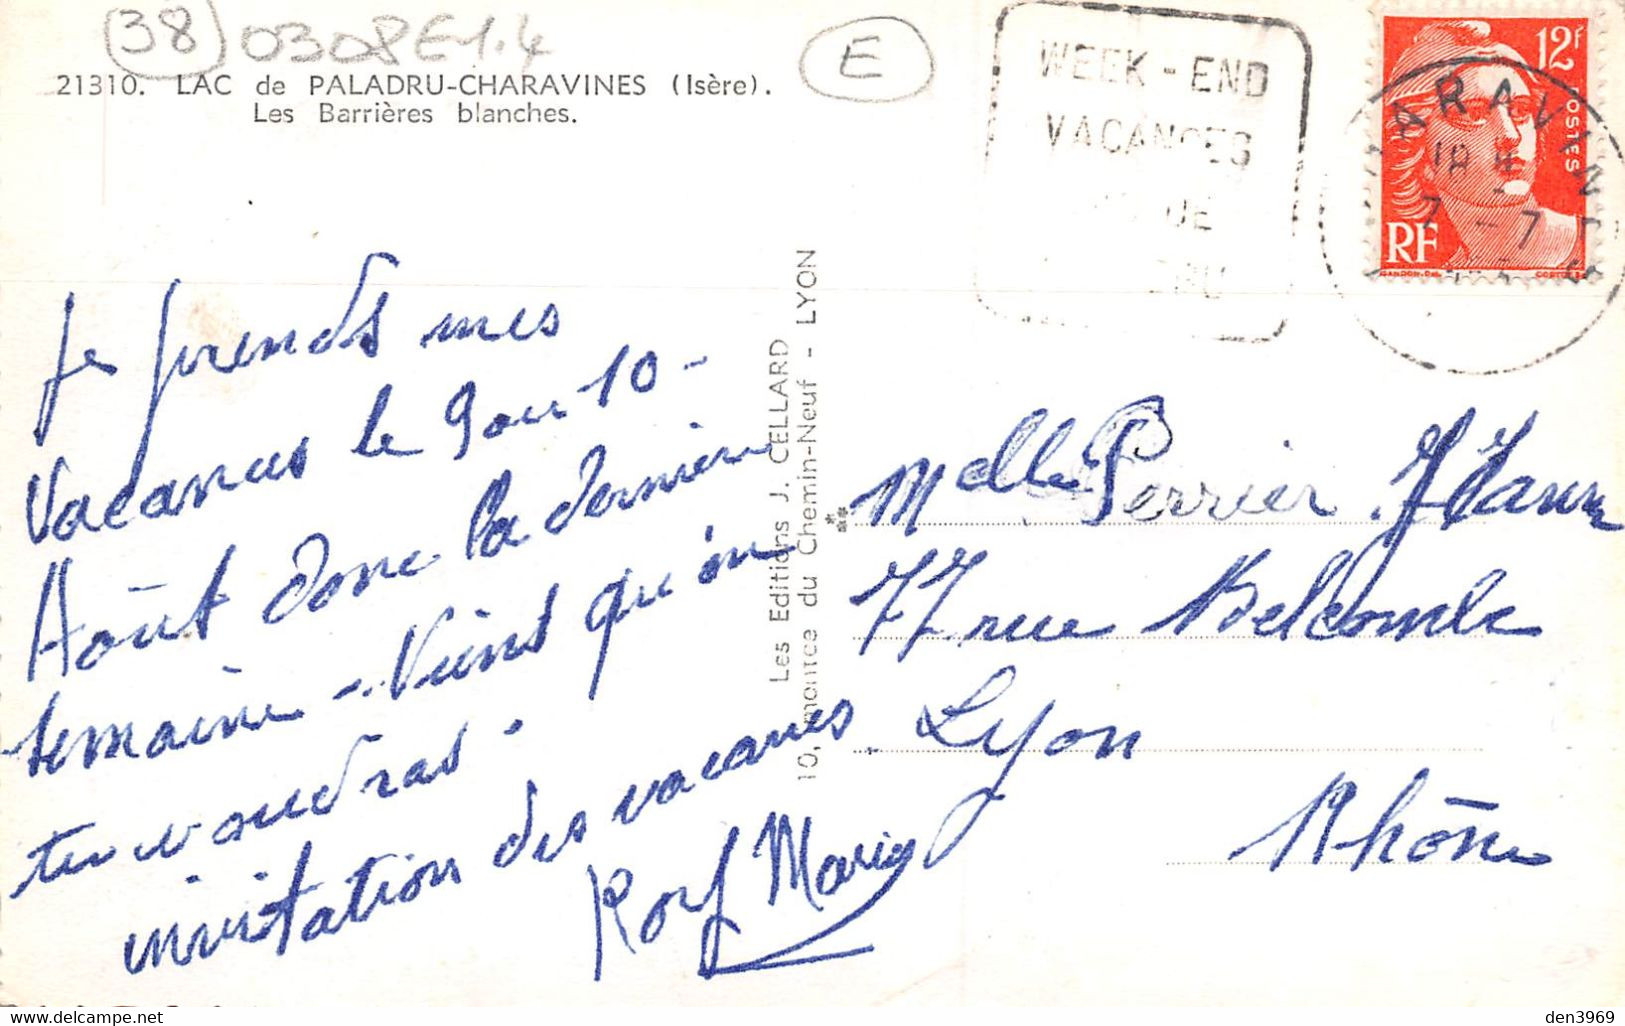 (38) 0308E1.4
E
21310. LAC de PALADRU-CHARAVINES (Isère).
Les Barrières blanches.
WEEK-END
VACANCES
12F
POSTES
RF
18 H
7 -7
Je prends mes
Vacances le 9 ou 10 -
Aôut donc la dernière
semaine - Viens qu'on
tu voudras.
invitation des vacances
Marie
Les Editions J. CELLARD
10, montée du Chemin-Neuf - LYON
Melle Perrier
77 rue Belcombe
Lyon
Rhône
www.delcampe.net
den3969